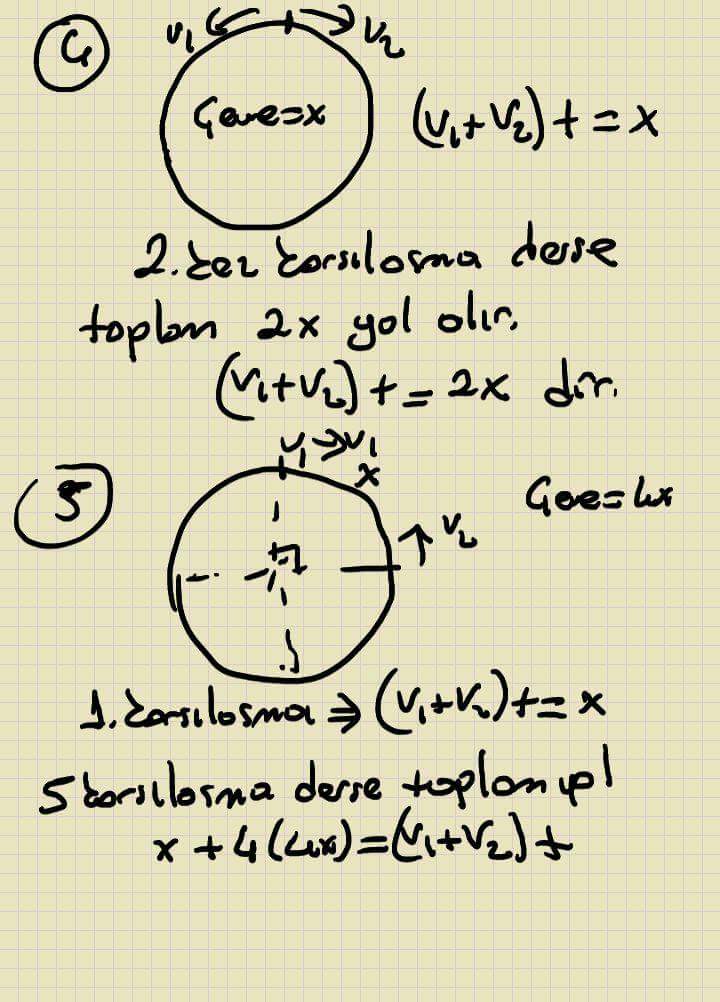 4
V₁ V₂
Çevre=x
(V₁+V₂)t=x
2. kez karşılaşma derse
toplam 2x yol alır.
(V₁+V₂)t=2x dir.
5
V₁ → V₁
x
V₂
Çevre=4x
1. karşılaşma ⇒ (V₁+V₂)t=x
5 karşılaşma derse toplam yol
x+4(4x)=(V₁+V₂)t